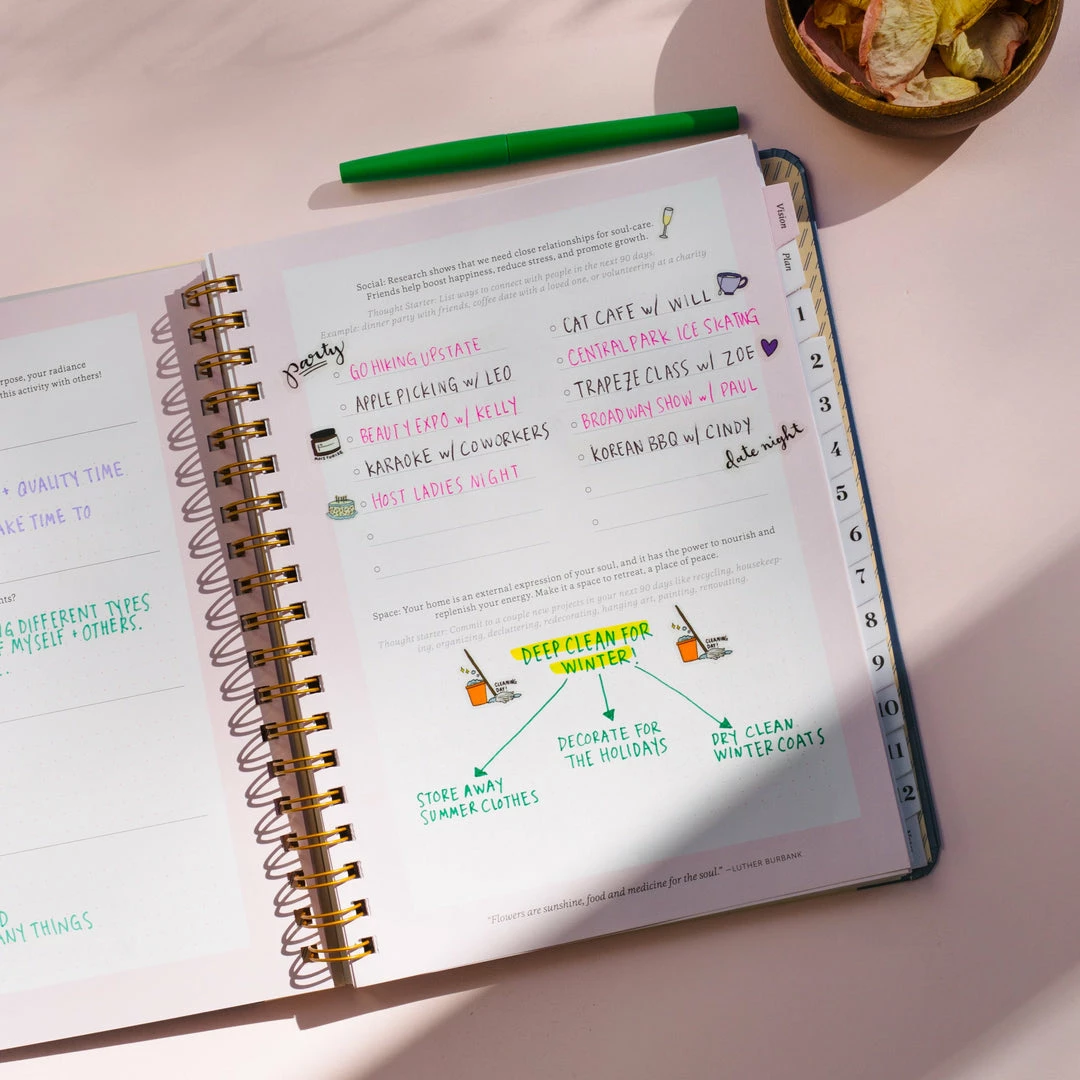 rpose, your radiance
this activity with others!
+ QUALITY TIME
AKE TIME TO
nts?
NG DIFFERENT TYPES
F MYSELF + OTHERS.
D
ANY THINGS
Social: Research shows that we need close relationships for soul-care.
Friends help boost happiness, reduce stress, and promote growth.
Thought Starter: List ways to connect with people in the next 90 days.
Example: dinner party with friends, coffee date with a loved one, or volunteering at a charity
party
GO HIKING UPSTATE
APPLE PICKING w/ LEO
BEAUTY EXPO w/ KELLY
KARAOKE w/ COWORKERS
HOST LADIES NIGHT
CAT CAFE w/ WILL
CENTRAL PARK ICE SKATING
TRAPEZE CLASS w/ ZOE
BROADWAY SHOW w/ PAUL
KOREAN BBQ w/ CINDY
date night
Space: Your home is an external expression of your soul, and it has the power to nourish and
replenish your energy. Make it a space to retreat, a place of peace.
Thought starter: Commit to a couple new projects in your next 90 days like recycling, housekeep-
ing, organizing, decluttering, redecorating, hanging art, painting, renovating.
DEEP CLEAN FOR
WINTER!
CLEANING
DAY!
CLEANING
DAY!
STORE AWAY
SUMMER CLOTHES
DECORATE FOR
THE HOLIDAYS
DRY CLEAN
WINTER COATS
"Flowers are sunshine, food and medicine for the soul." –LUTHER BURBANK
Vision
Plan
1
2
3
4
5
6
7
8
9
10
11
12